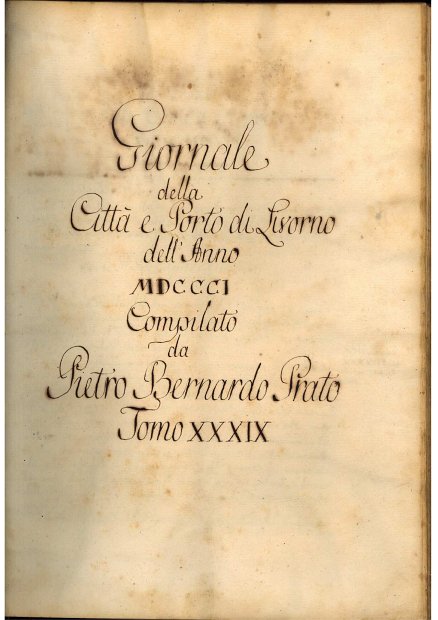 Giornale
della
Città e Porto di Livorno
dell'Anno
MDCCCI
Compilato
da
Pietro Bernardo Prato
Tomo XXXIX